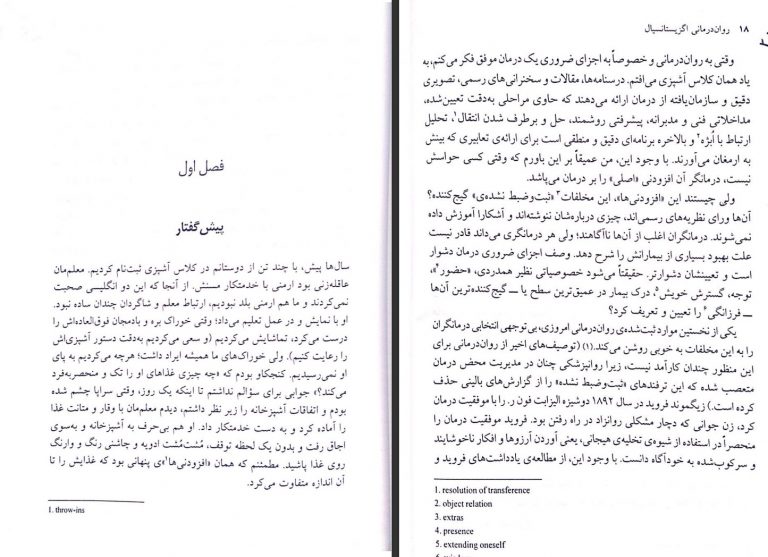 ۱۸ روان‌درمانی اگزیستانسیال
وقتی به روان‌درمانی و خصوصاً به اجزای ضروری یک درمان موفق فکر می‌کنم، به
یاد همان کلاس آشپزی می‌افتم. درسنامه‌ها، مقالات و سخنرانی‌های رسمی، تصویری
دقیق و سازمان‌یافته از درمان ارائه می‌دهند که حاوی مراحلی به‌دقت تعیین‌شده،
مداخلاتی فنی و مدبرانه، پیشرفتی روشمند، حل و برطرف شدن انتقال۱، تحلیل
ارتباط با اُبژه۲ و بالاخره برنامه‌ای دقیق و منطقی است برای ارائه‌ی تعابیری که بینش
به ارمغان می‌آورند. با وجود این، من عمیقاً بر این باورم که وقتی کسی حواسش
نیست، درمانگر آن افزودنی «اصلی» را بر درمان می‌پاشد.
ولی چیستند این «افزودنی‌ها»، این مخلفات۳ «ثبت‌وضبط نشده‌ی» گیج‌کننده؟
آن‌ها ورای نظریه‌های رسمی‌اند، چیزی درباره‌شان ننوشته‌اند و آشکارا آموزش داده
نمی‌شوند. درمانگران اغلب از آن‌ها ناآگاهند؛ ولی هر درمانگری می‌داند قادر نیست
علت بهبود بسیاری از بیمارانش را شرح دهد. وصف اجزای ضروری درمان دشوار
است و تعیینشان دشوارتر. حقیقتاً می‌شود خصوصیاتی نظیر همدردی، «حضور۴»،
توجه، گسترش خویش۵، درک بیمار در عمیق‌ترین سطح یا ــ گیج‌کننده‌ترین آن‌ها
ــ فرزانگی۶ را تعیین و تعریف کرد؟
یکی از نخستین موارد ثبت‌شده‌ی روان‌درمانی امروزی، بی‌توجهی انتخابی درمانگران
را به این مخلفات به خوبی روشن می‌کند.(۱) (توصیف‌های اخیر از روان‌درمانی برای
این منظور چندان کارآمد نیست، زیرا روانپزشکی چنان در مدیریت محض درمان
متعصب شده که این ترفندهای «ثبت‌وضبط نشده» را از گزارش‌های بالینی حذف
کرده است.) زیگموند فروید در سال ۱۸۹۲ دوشیزه الیزابت فون ر. را با موفقیت درمان
کرد، زن جوانی که دچار مشکلی روانزاد در راه رفتن بود. فروید موفقیت درمان را
منحصراً در استفاده از شیوه‌ی تخلیه‌ی هیجانی، یعنی آوردن آرزوها و افکار ناخوشایند
و سرکوب‌شده به خودآگاه دانست. با وجود این، از مطالعه‌ی یادداشت‌های فروید و
1. resolution of transference
2. object relation
3. extras
4. presence
5. extending oneself
فصل اول
پیش‌گفتار
سال‌ها پیش، با چند تن از دوستانم در کلاس آشپزی ثبت‌نام کردیم. معلم‌مان
عاقله‌زنی بود ارمنی با خدمتکار مسنش. از آنجا که این دو انگلیسی صحبت
نمی‌کردند و ما هم ارمنی بلد نبودیم، ارتباط معلم و شاگردان چندان ساده نبود.
او با نمایش و در عمل تعلیم می‌داد؛ وقتی خوراک بره و بادمجان فوق‌العاده‌اش را
درست می‌کرد، تماشایش می‌کردیم (و سعی می‌کردیم به‌دقت دستور آشپزی‌اش
را رعایت کنیم). ولی خوراک‌های ما همیشه ایراد داشت؛ هرچه می‌کردیم به پای
او نمی‌رسیدیم. کنجکاو بودم که «چه چیزی غذاهای او را تک و منحصربه‌فرد
می‌کند؟» جوابی برای سؤالم نداشتم تا اینکه یک روز، وقتی سراپا چشم شده
بودم و اتفاقات آشپزخانه را زیر نظر داشتم، دیدم معلم‌مان با وقار و متانت غذا
را آماده کرد و به دست خدمتکار داد. او هم بی‌حرف به آشپزخانه و به‌سوی
اجاق رفت و بدون یک لحظه توقف، مُشت‌مُشت ادویه و چاشنی رنگ و وارنگ
روی غذا پاشید. مطمئنم که همان «افزودنی‌ها۱»ی پنهانی بود که غذایش را تا
آن اندازه متفاوت می‌کرد.
1. throw-ins